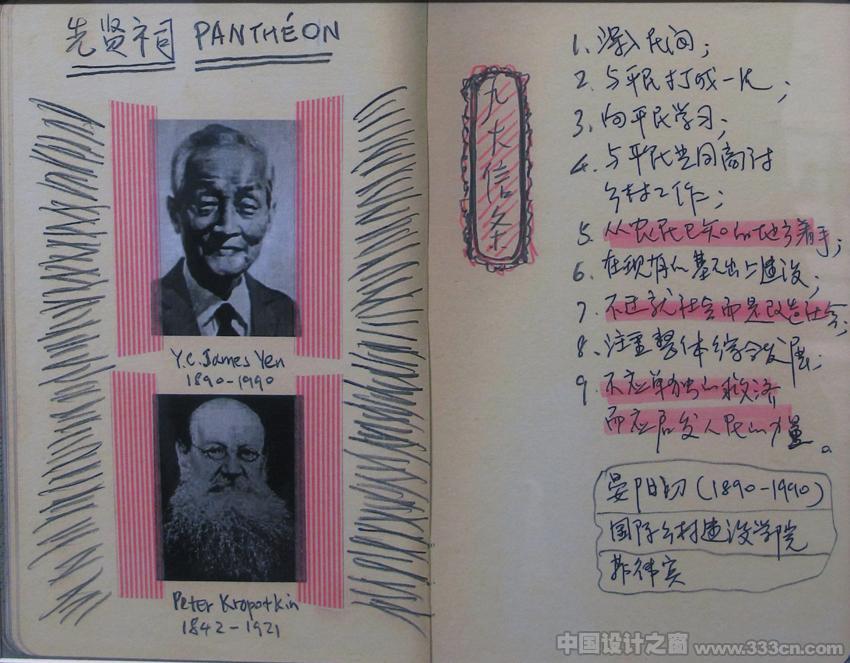 先贤祠 PANTHÉON
Y.C. James Yen
1890-1990
Peter Kropotkin
1842-1921
九大信条
1. 深入民间;
2. 与平民打成一片;
3. 向平民学习;
4. 与平民共同商讨
乡村工作;
5. 从农民已知的地方着手;
6. 在现有的基础上建设;
7. 不迁就社会而是改造社会;
8. 注重整体综合发展;
9. 不应单独的救济
而应启发人民的力量。
晏阳初(1890-1990)
国际乡村建设学院
菲律宾
中国设计之窗 www.333cn.com